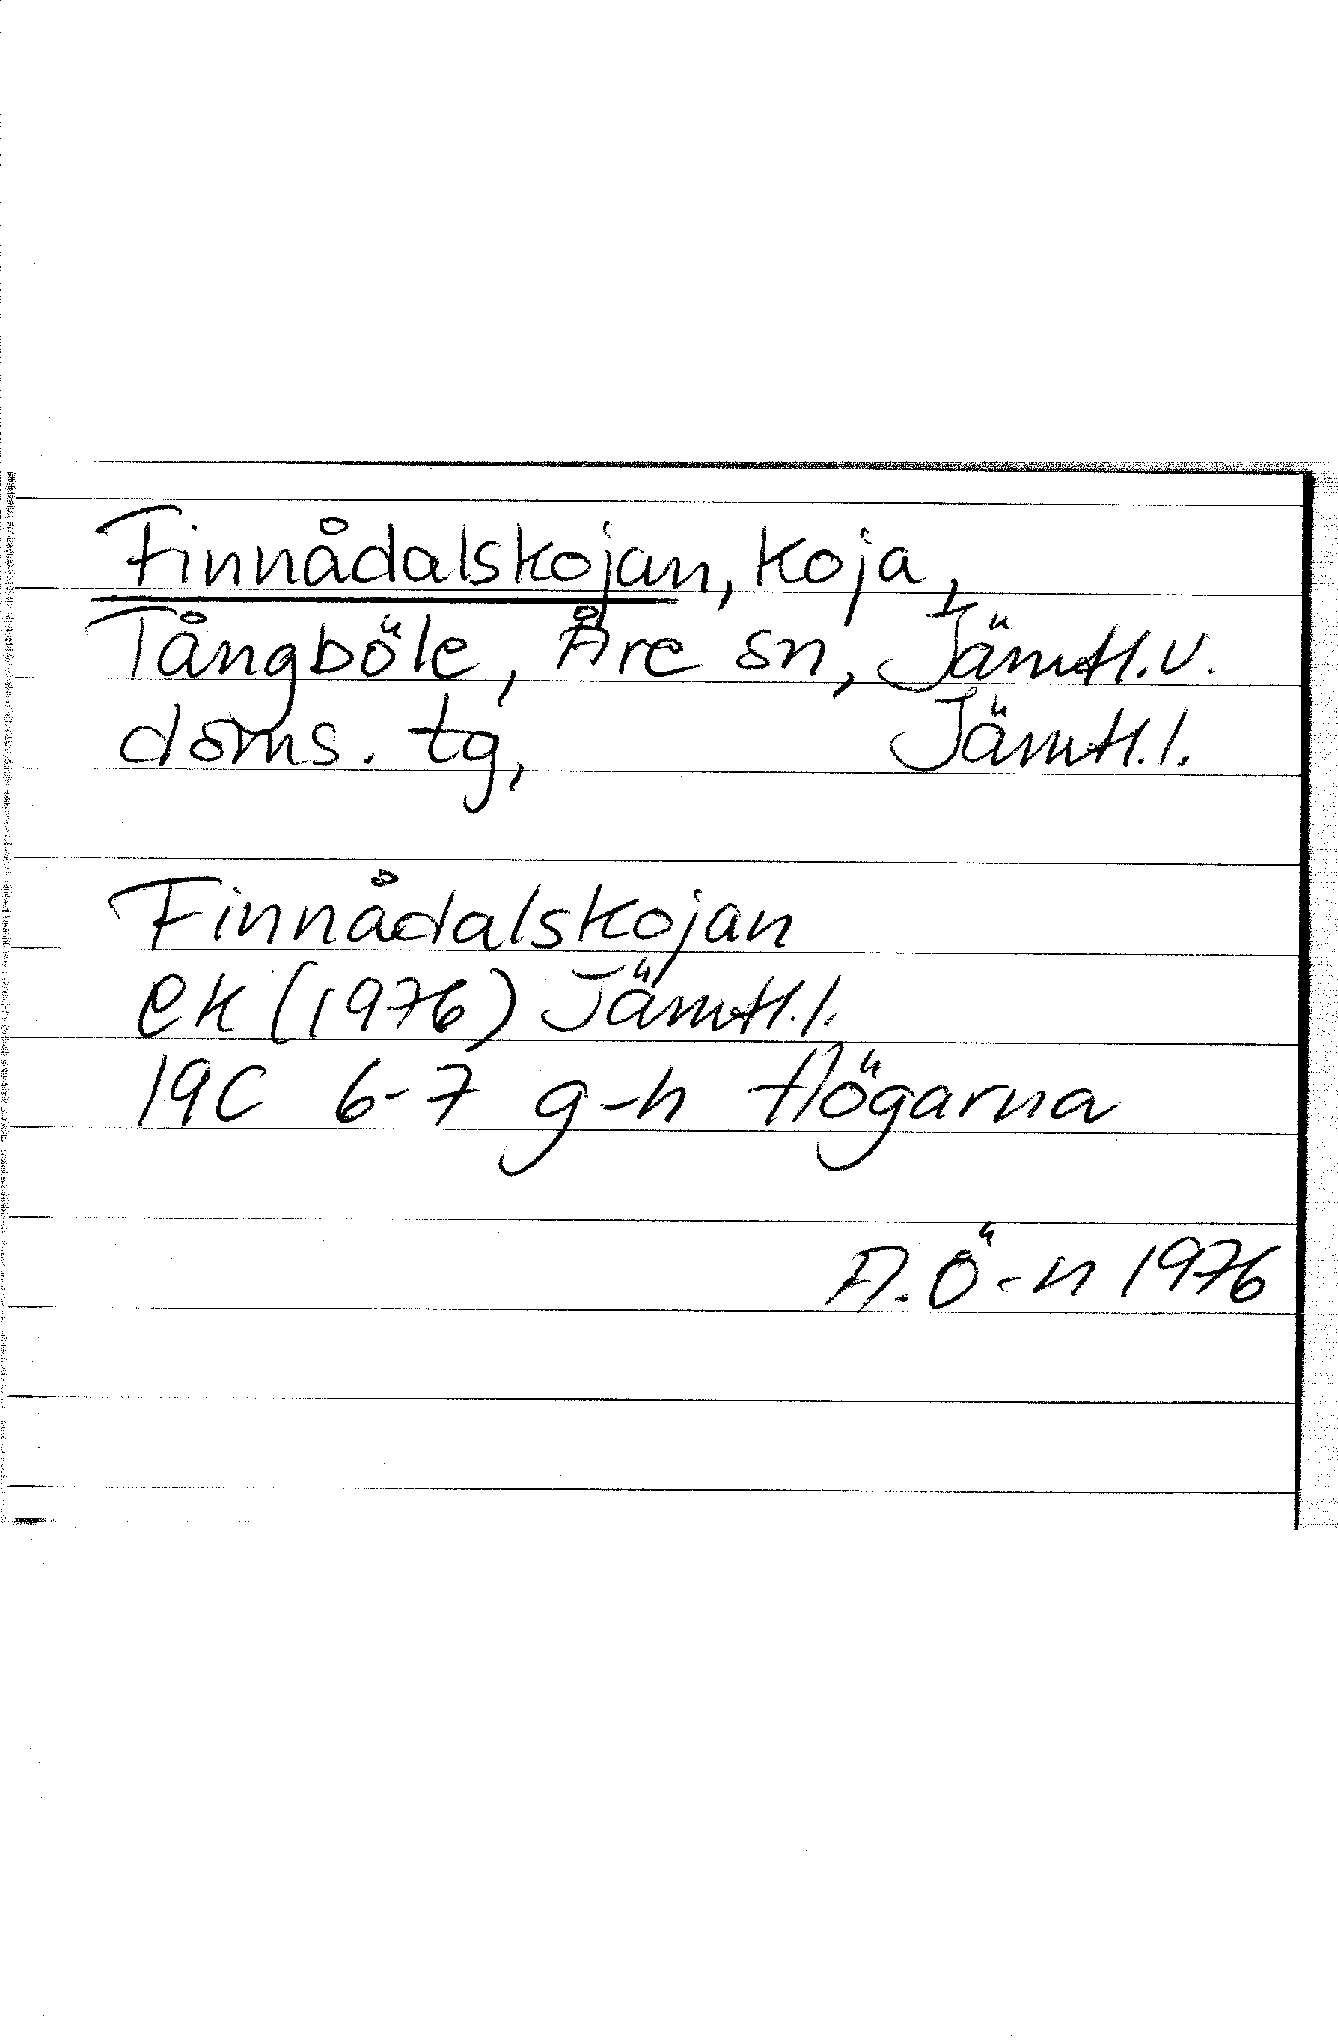 Finnådalskojan, koja,
Tångböle, Åre sn, Jämtl.v.
doms. tg, Jämtl.l.
Finnådalskojan
ek (1976) Jämtl.l.
19C 6-7 g-h Högarna
A.Ö-n 1976